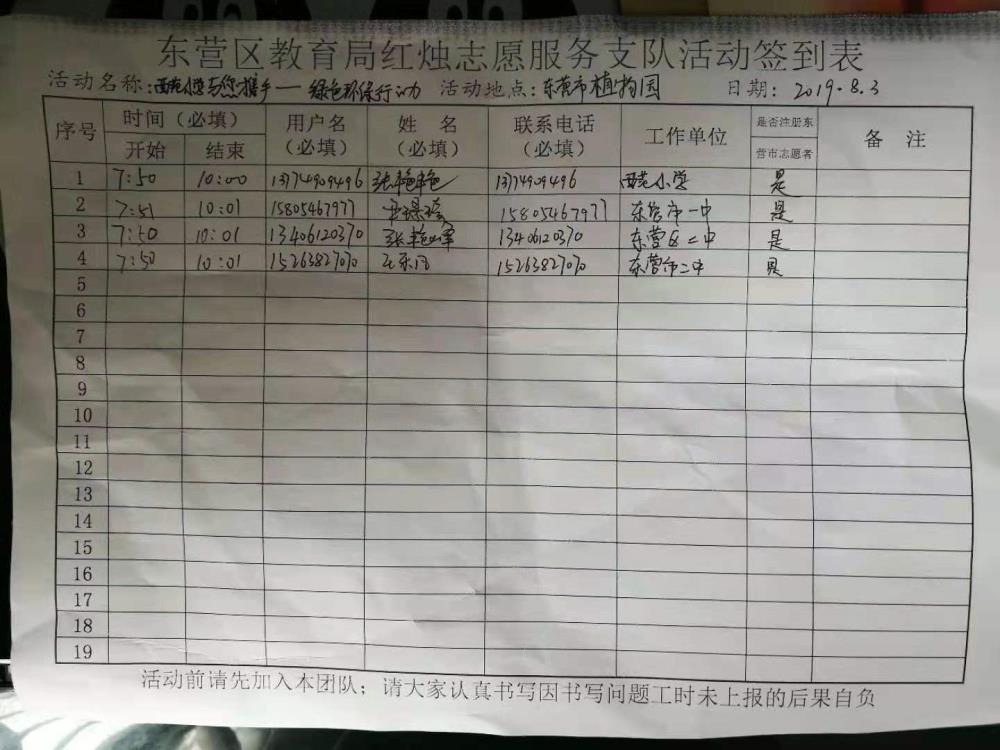 东营区教育局红烛志愿服务支队活动签到表
活动名称:西苑小学与您携手一绿色环保行动 活动地点:东营市植物园 日期: 2019.8.3
序号 时间（必填） 用户名（必填） 姓 名（必填） 联系电话（必填） 工作单位 是否注册东营市志愿者 备 注
开始 结束
1 7:50 10:00 13774909496 张艳艳 13774909496 西苑小学 是
2 7:51 10:01 15805467977 15805467977 东营市一中 是
3 7:50 10:01 13406120370 张艳军 13406120370 东营区二中 是
4 7:50 10:01 15263827070 15263827070 东营市二中 是
5
6
7
8
9
10
11
12
13
14
15
16
17
18
19
活动前请先加入本团队；请大家认真书写因书写问题工时未上报的后果自负